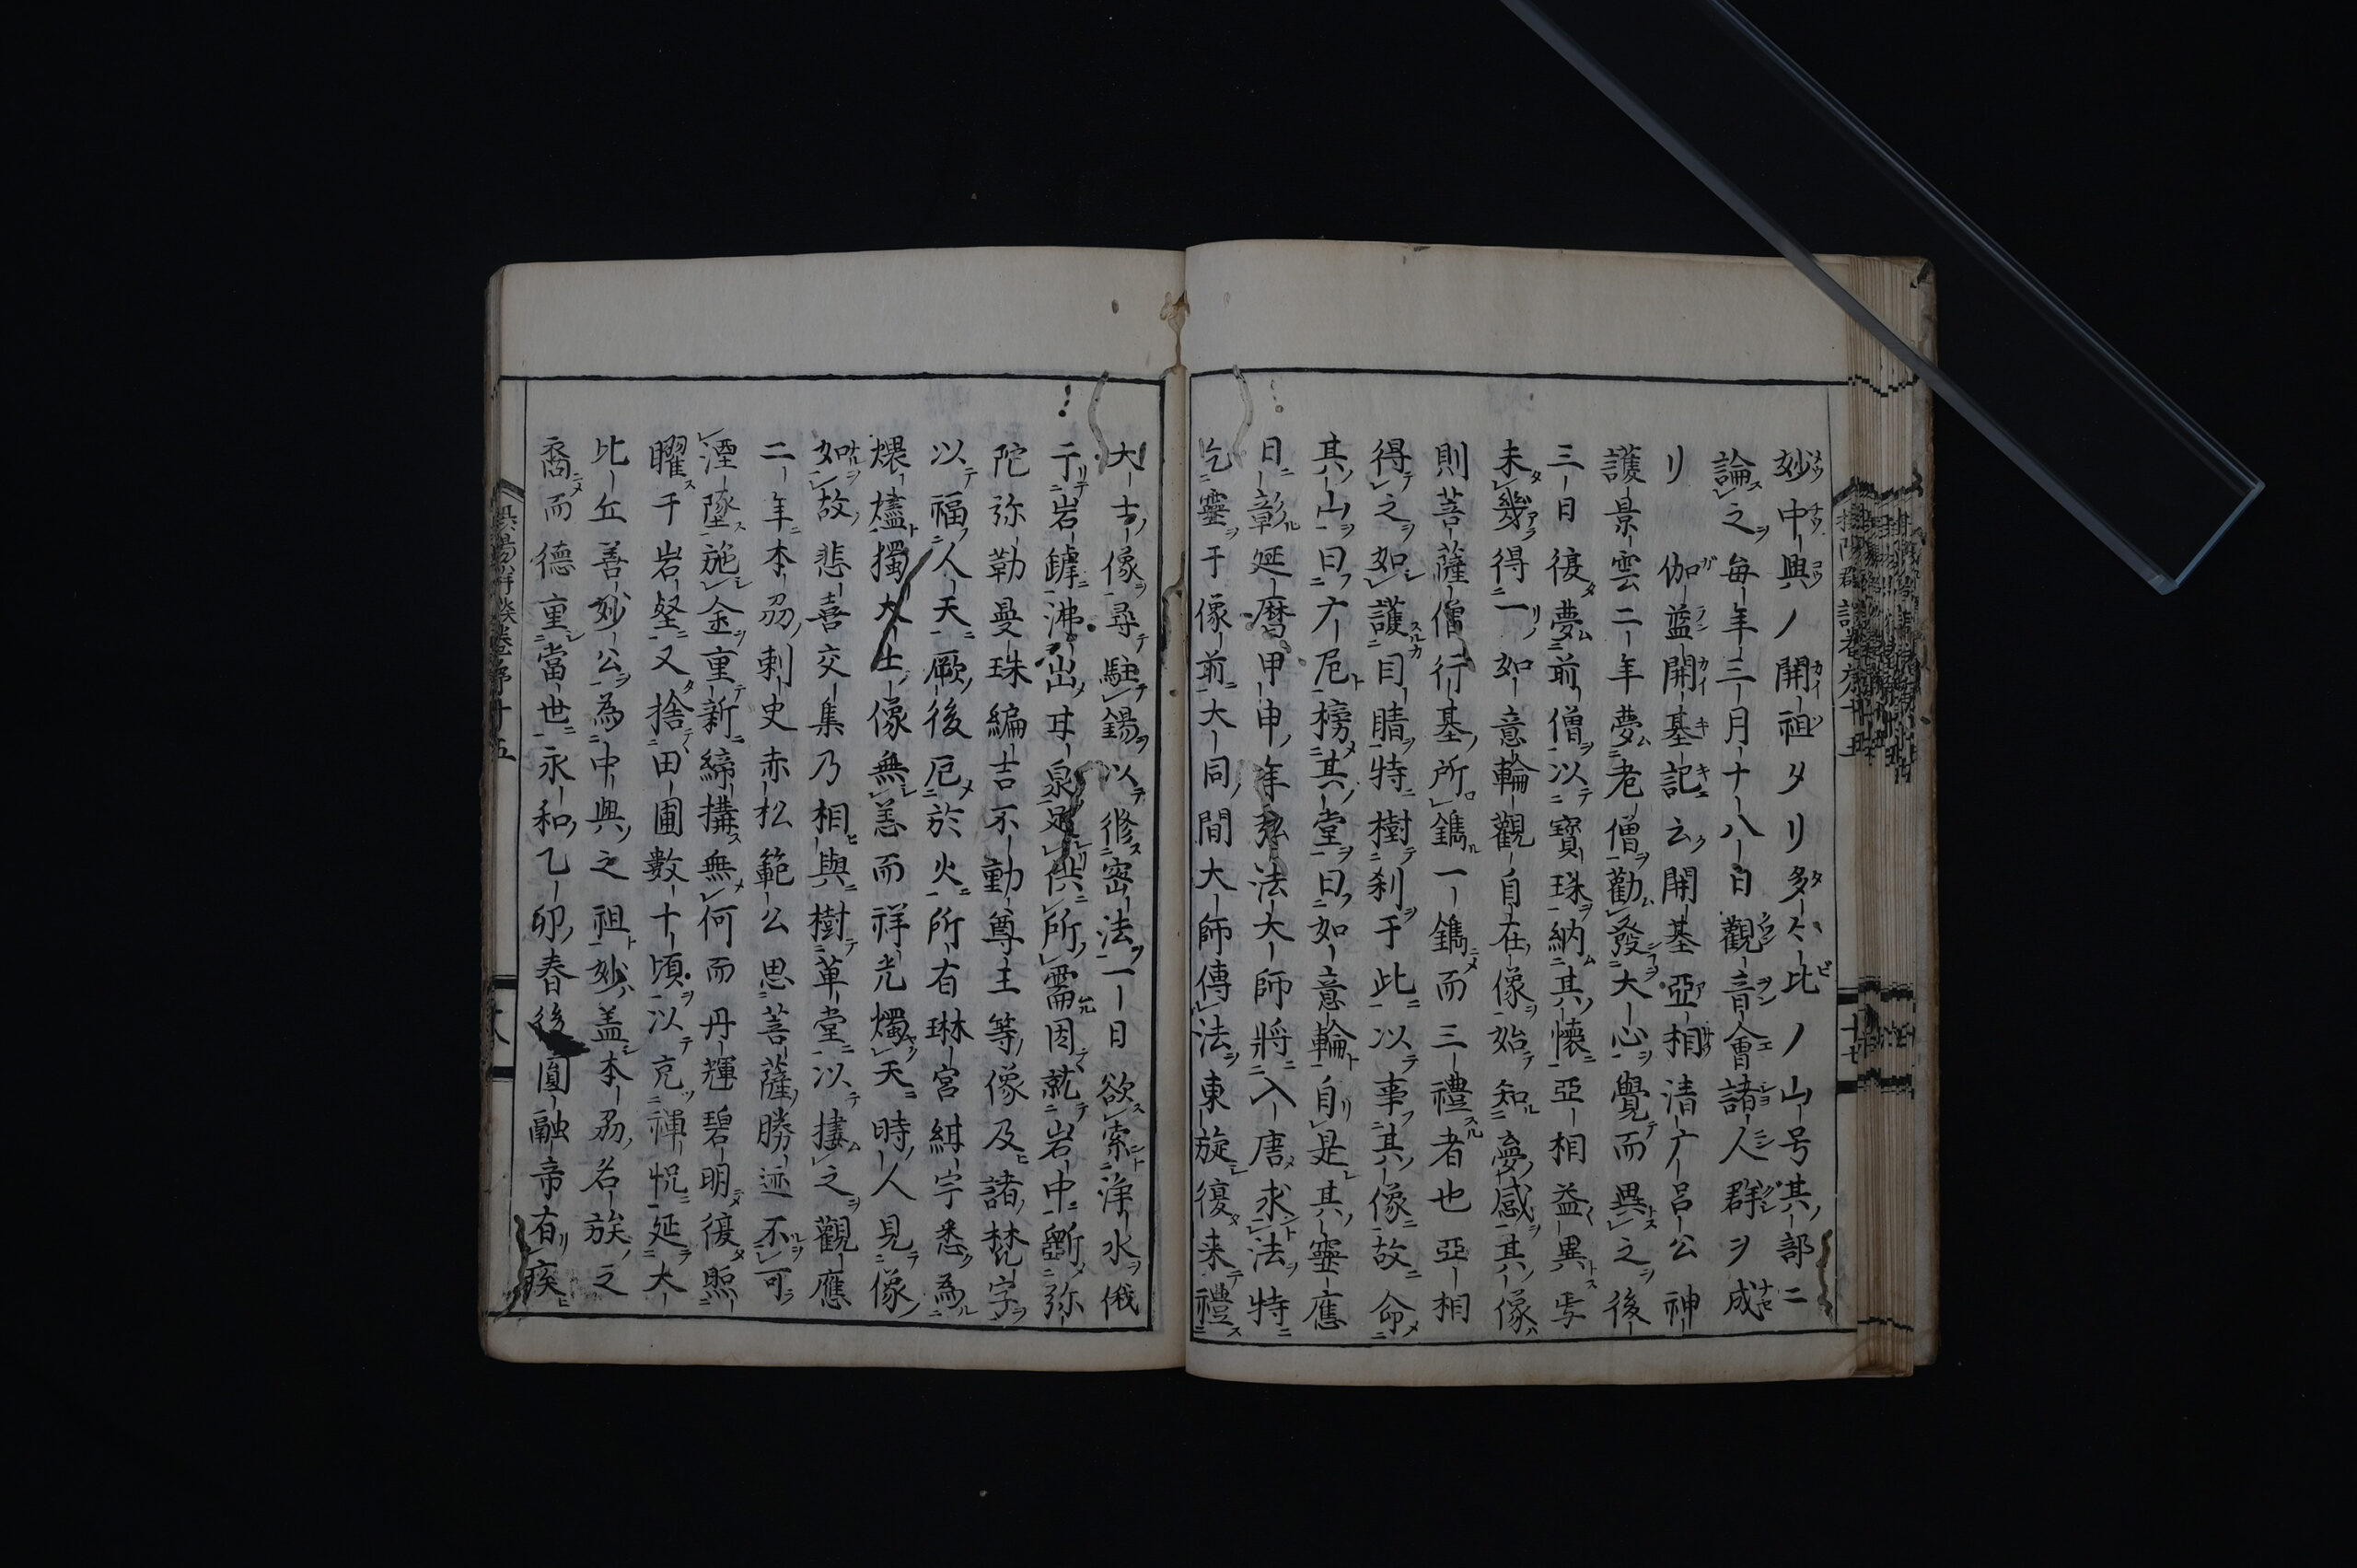 妙中興ノ開祖タリ多々比ノ山号其部ニ
論之毎年三月十八日觀音會諸人群ヲ成
リ 伽藍開基記云開基亞相清广呂公神
護景雲二年夢老僧勸發大心覺而異之後
三日復夢前僧以寳珠納其懐亞相益異焉
未幾得一如意輪觀自在像始知夢感其像
則菩薩僧行基所鐫一鐫而三禮者也亞相
得之如護目睛特樹刹于此以事其像故命
其山曰广尼榜其堂曰如意輪自是其靈應
日彰延暦甲申年弘法大師將入唐求法特
乞靈于像前大同間大師傳法東旋復来禮
大士像尋駐錫以修密法一日欲索淨水俄
于岩罅沸出甘泉足供所需因就岩中斵弥
陀弥勒曼珠編吉不動尊王等像及諸梵字
以福人天厥後厄於火所有琳宮紺宇悉為
煨燼獨大士像無恙而祥光燭天時人見像
如故悲喜交集乃相與樹草堂以摟之觀應
二年本刕刺史赤松範公思菩薩勝迹不可
湮墜施金重新締搆無何而丹輝碧明復照
曜于岩壑又捨田圃數十頃以充禅悦延大
比丘善妙公為中興之祖妙盖本刕名族之
裔而德重當世永和乙卯春後圓融帝有疾
十七